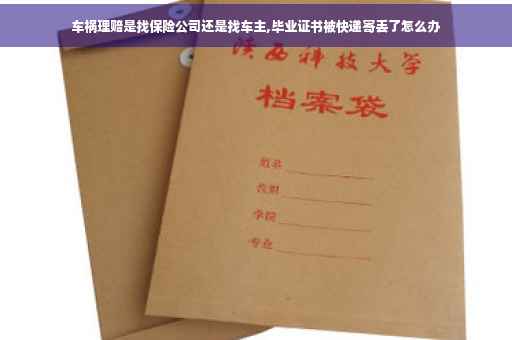 车祸理赔是找保险公司还是找车主,毕业证书被快递寄丢了怎么办
陕西科技大学
档案袋
姓名
性别
学院
专业